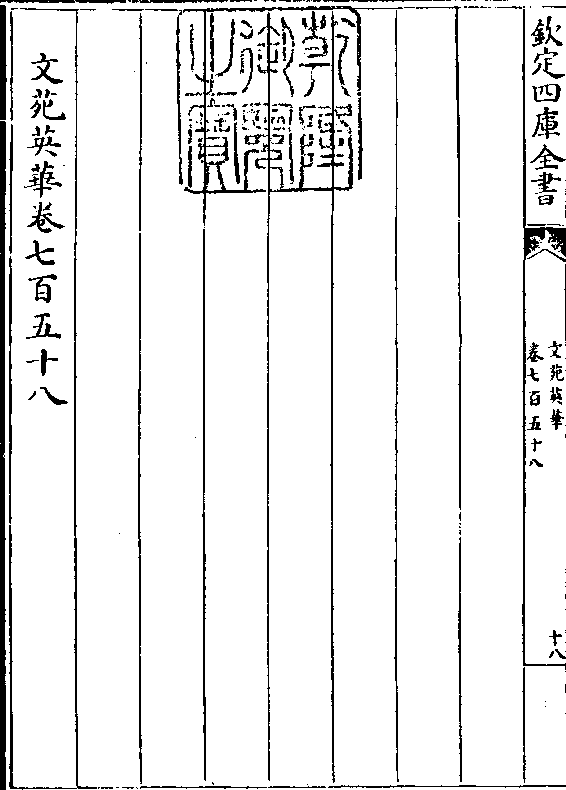 欽定四庫全書
文苑英華
卷七百五十八
十八
乾隆御覽之寶
文苑英華卷七百五十八